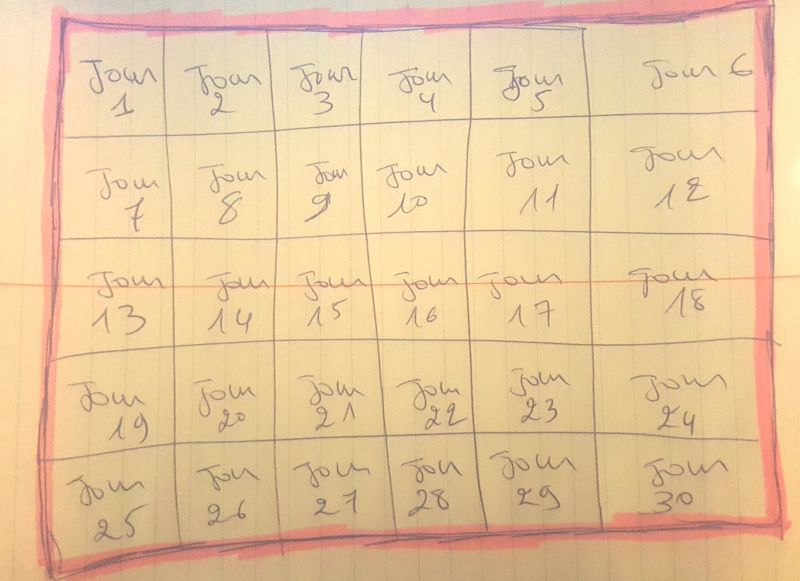 Jour Jour Jour Jour Jour Jour 6
1 2 3 4 5
Jour Jour Jour Jour Jour Jour
7 8 9 10 11 12
Jour Jour Jour Jour Jour Jour
13 14 15 16 17 18
Jour Jour Jour Jour Jour Jour
19 20 21 22 23 24
Jour Jour Jour Jour Jour Jour
25 26 27 28 29 30